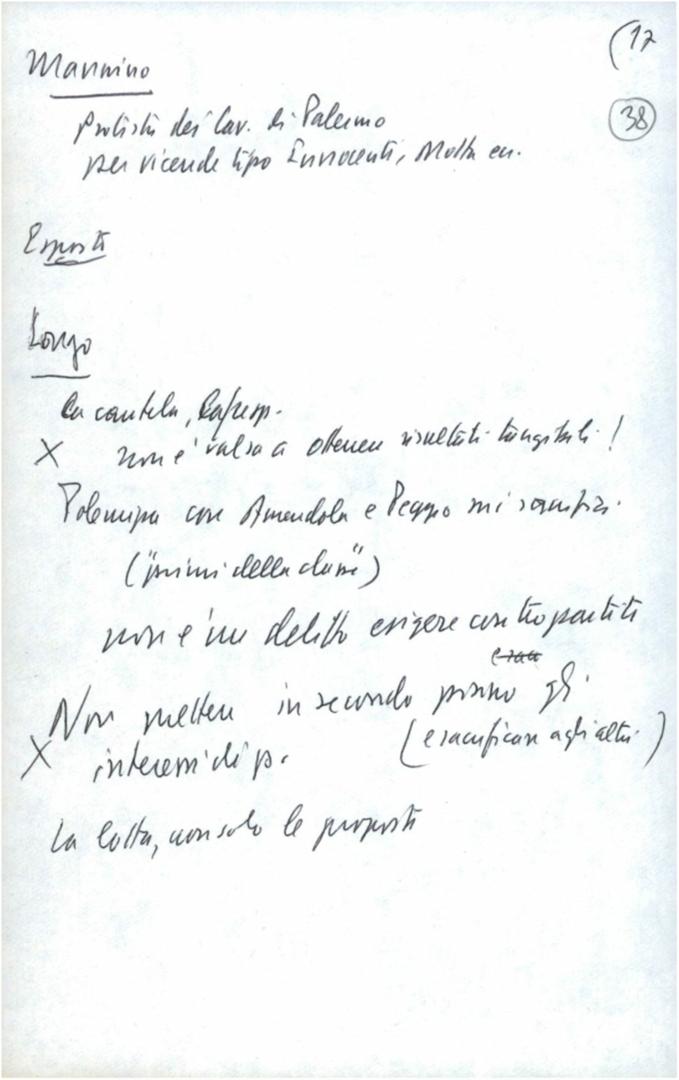 (17
38
Mannino
Protesta dei lav. di Palermo
per vicende tipo Innocenti, Motta ecc.
Esposti
Longo
La cautela, la resp.
X non è valsa a ottenere risultati tangibili!
Polemica con Amendola e Peggio sui sacrifizi.
("primi della classe")
non è un delitto esigere contropartite
Non mettere in secondo piano gli
X interessi di p. (e sacrificare agli altri)
La lotta, non solo le proposte